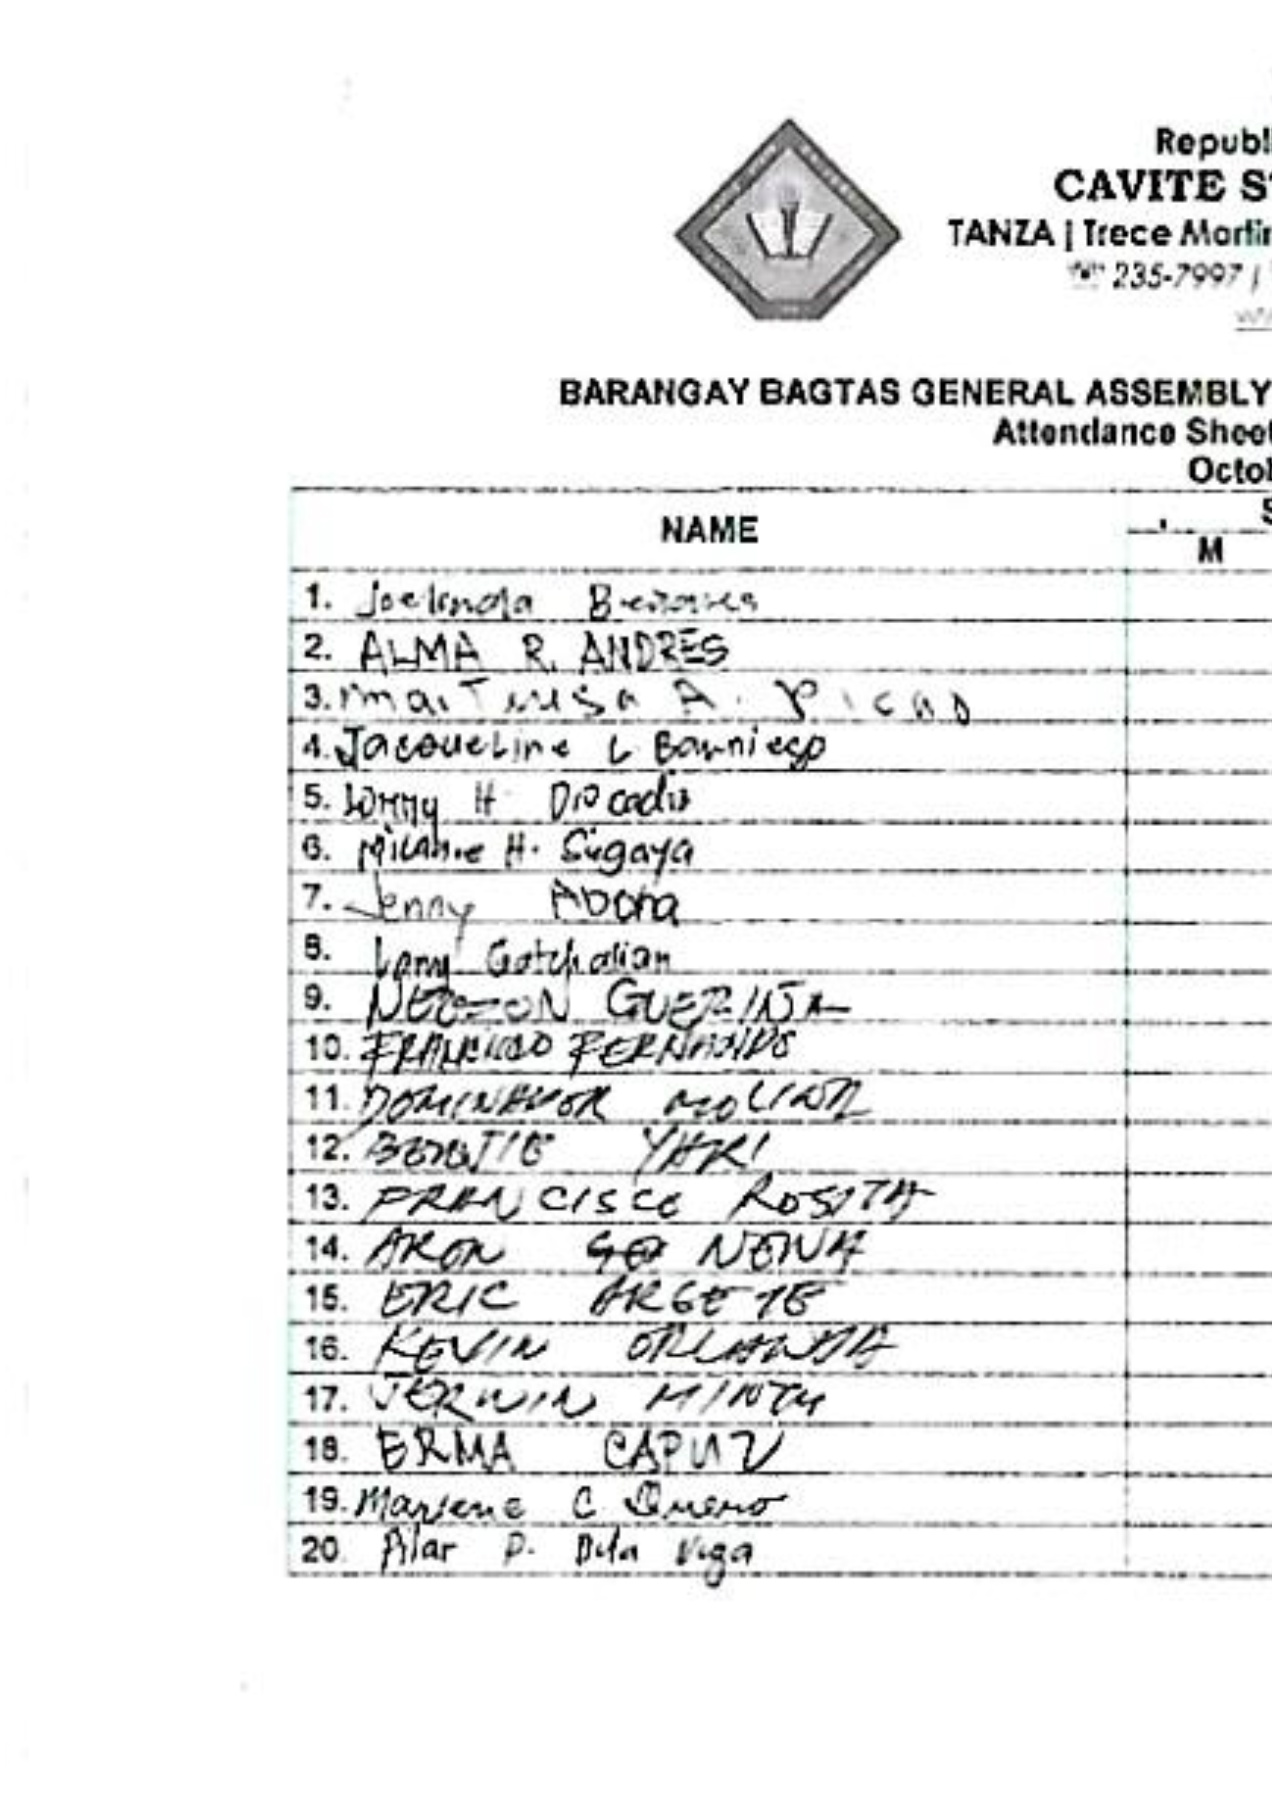 Republi
CAVITE S
TANZA | Trece Martir
235-7997 |
BARANGAY BAGTAS GENERAL ASSEMBLY
Attendance Sheet
Octo
NAME
S
M
1. Joelinda
2. ALMA R. ANDRES
3. Ma. Teresa A. Picao
4. Jacqueline L Banniego
5. H. Diocadiz
6. Milanie H. Sugaya
7. Jenny Abona
8. Larry Gatchalian
9. GUERIÑA
10. FRANCISCO FERNANDO
11. DOMINADOR MOLINA
12. BENEJIE YARI
13. FRANCISCO ROSITA
14. ARON NENA
15. ERIC ARGETE
16. KEVIN ORLANDA
17. JERWIN MINTU
18. ERMA CAPUZ
19. Marlene C
20. Pilar P. Dela Vega